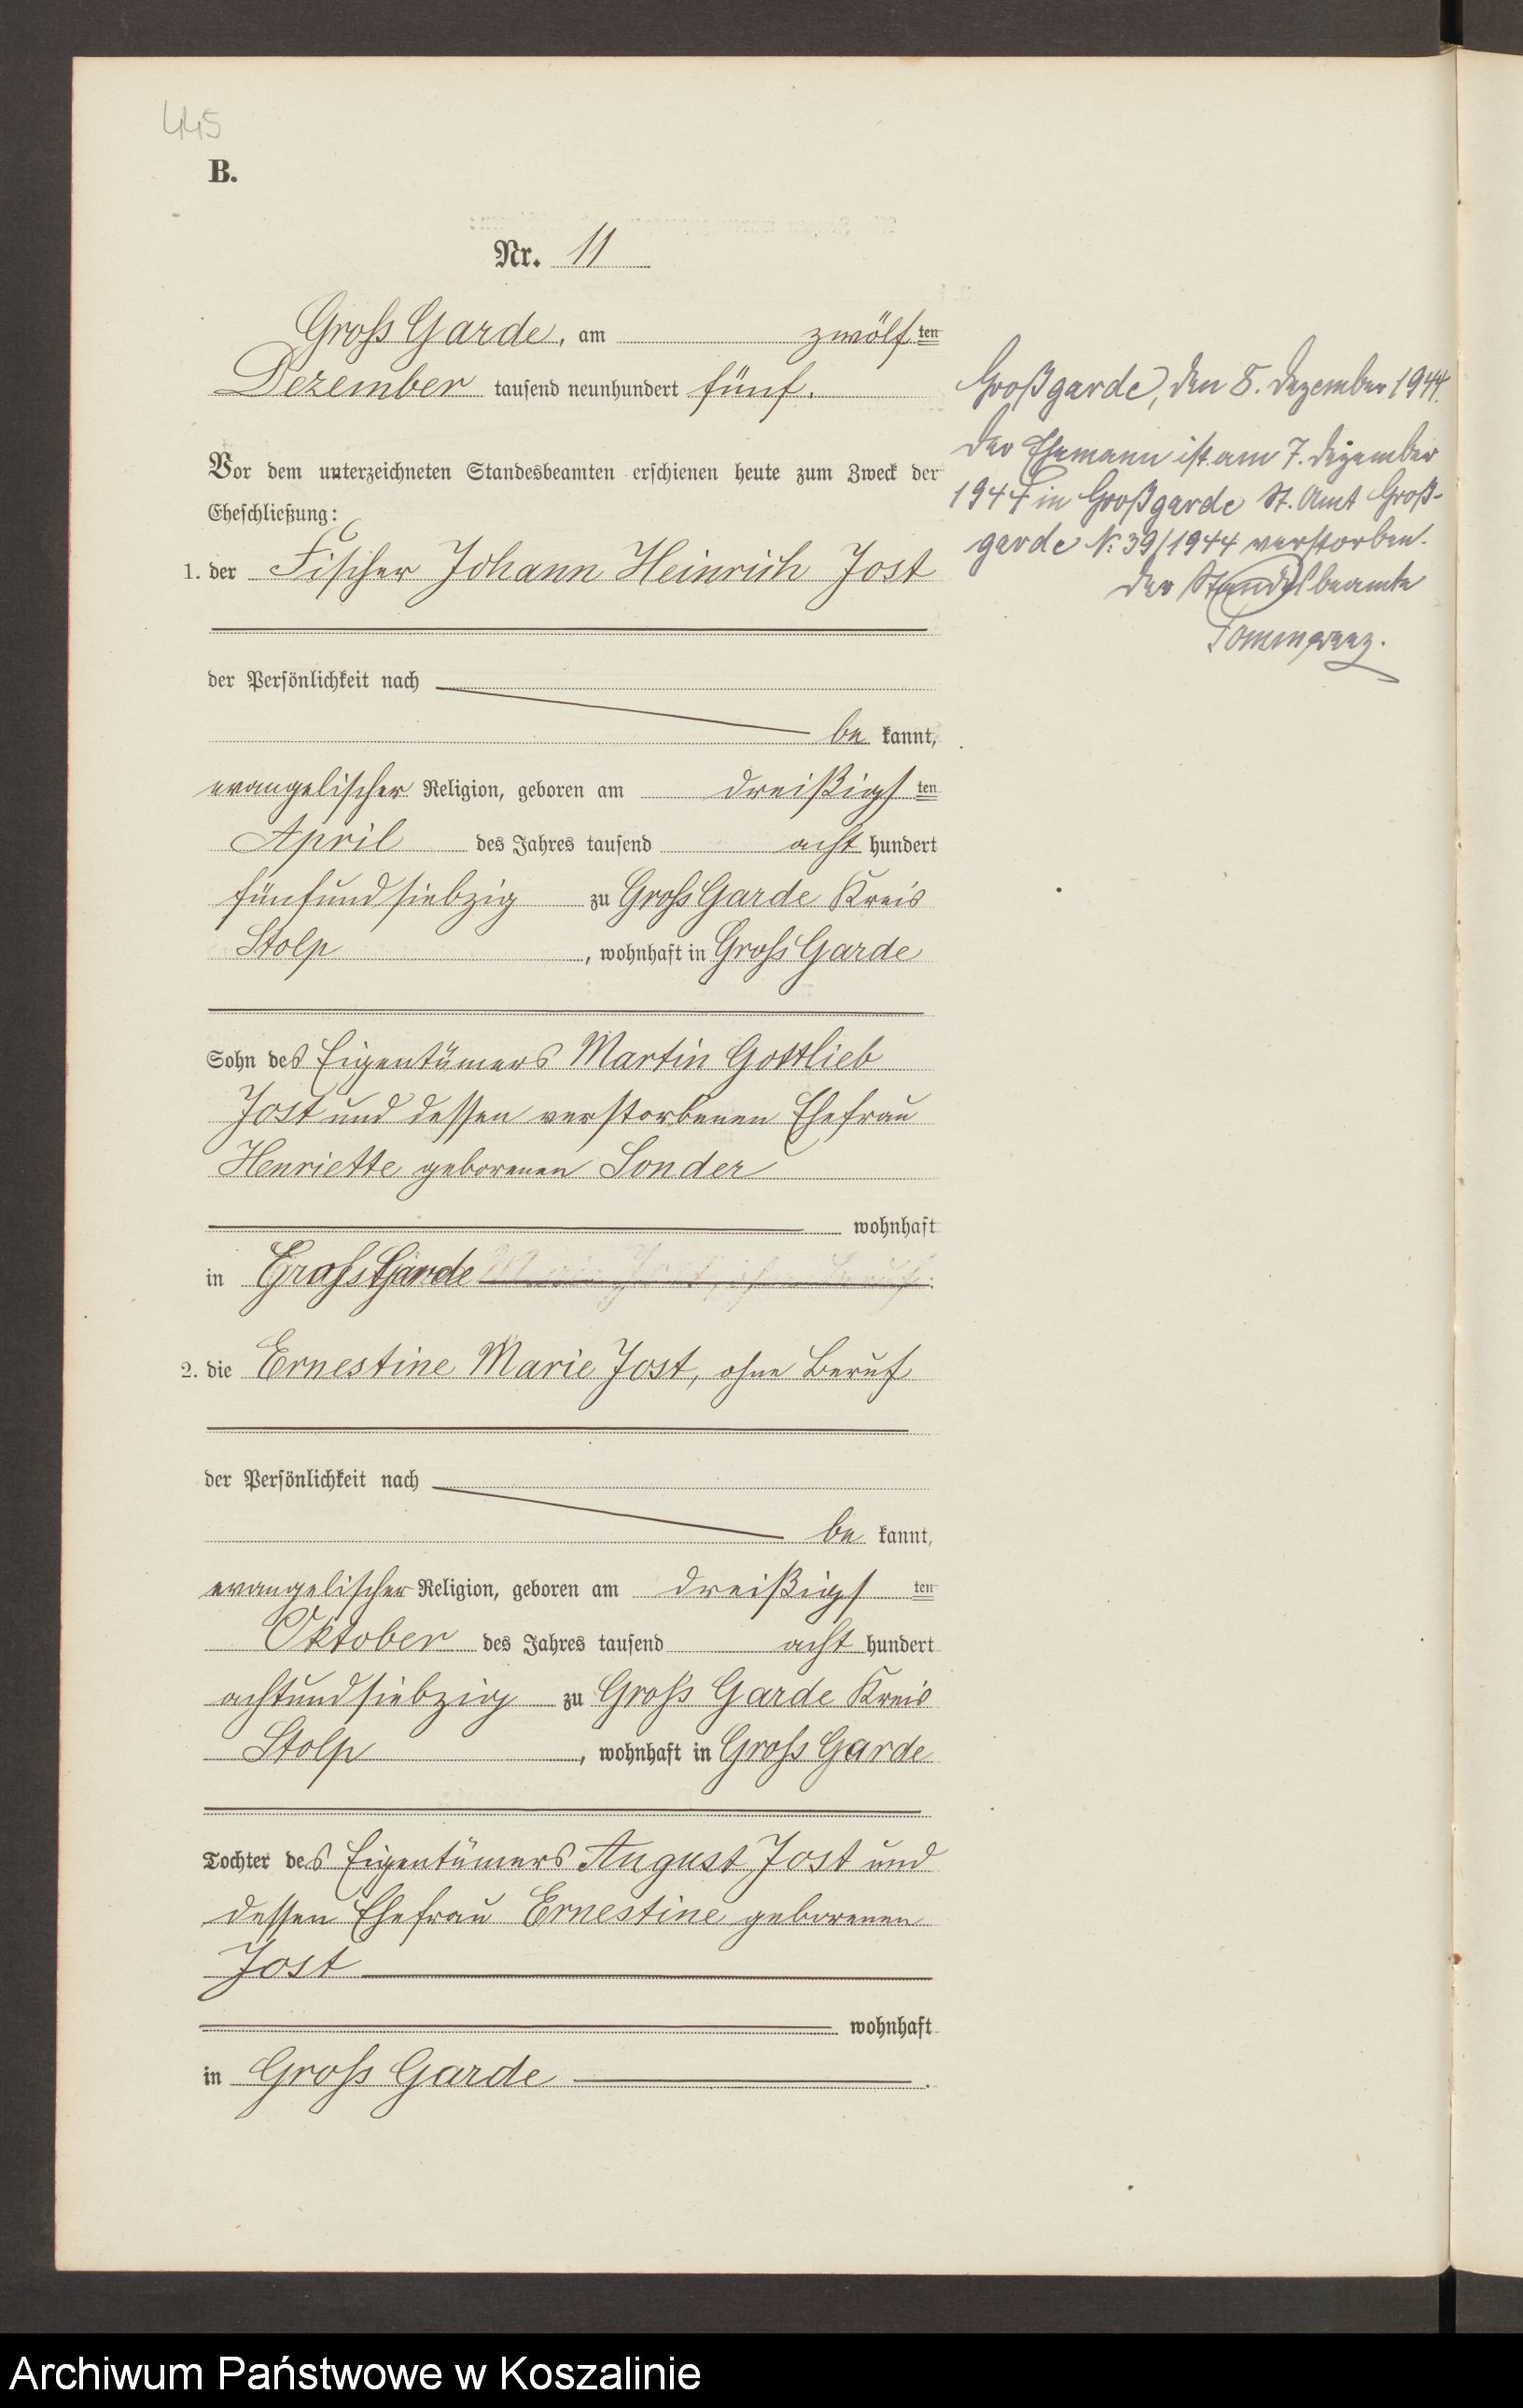 445
B.
Nr. 11
Gross Garde, am zwölf ten
Dezember tausend neunhundert fünf.
Vor dem unterzeichneten Standesbeamten erschienen heute zum Zweck der
Eheschließung:
1. der Fischer Johann Heinrich Jost
der Persönlichkeit nach
be kannt,
evangelischer Religion, geboren am dreißigs ten
April des Jahres tausend acht hundert
fünfundsiebzig zu Gross Garde Kreis
Stolp, wohnhaft in Gross Garde
Sohn des Eigentümers Martin Gottlieb
Jost und dessen verstorbenen Ehefrau
Henriette geborenen Sonder
wohnhaft
in Gross Garde
2. die Ernestine Marie Jost, ohne Beruf
der Persönlichkeit nach
be kannt,
evangelischer Religion, geboren am dreißigs ten
Oktober des Jahres tausend acht hundert
achtundsiebzig zu Gross Garde Kreis
Stolp, wohnhaft in Gross Garde
Tochter des Eigentümers August Jost und
dessen Ehefrau Ernestine geborenen
Jost
wohnhaft
in Gross Garde.
Großgarde, den 8. Dezember 1944.
Der Ehemann ist am 7. Dezember
1944 in Großgarde St. Amt Groß-
garde N: 39/1944 verstorben.
Der Standesbeamte
Archiwum Państwowe w Koszalinie